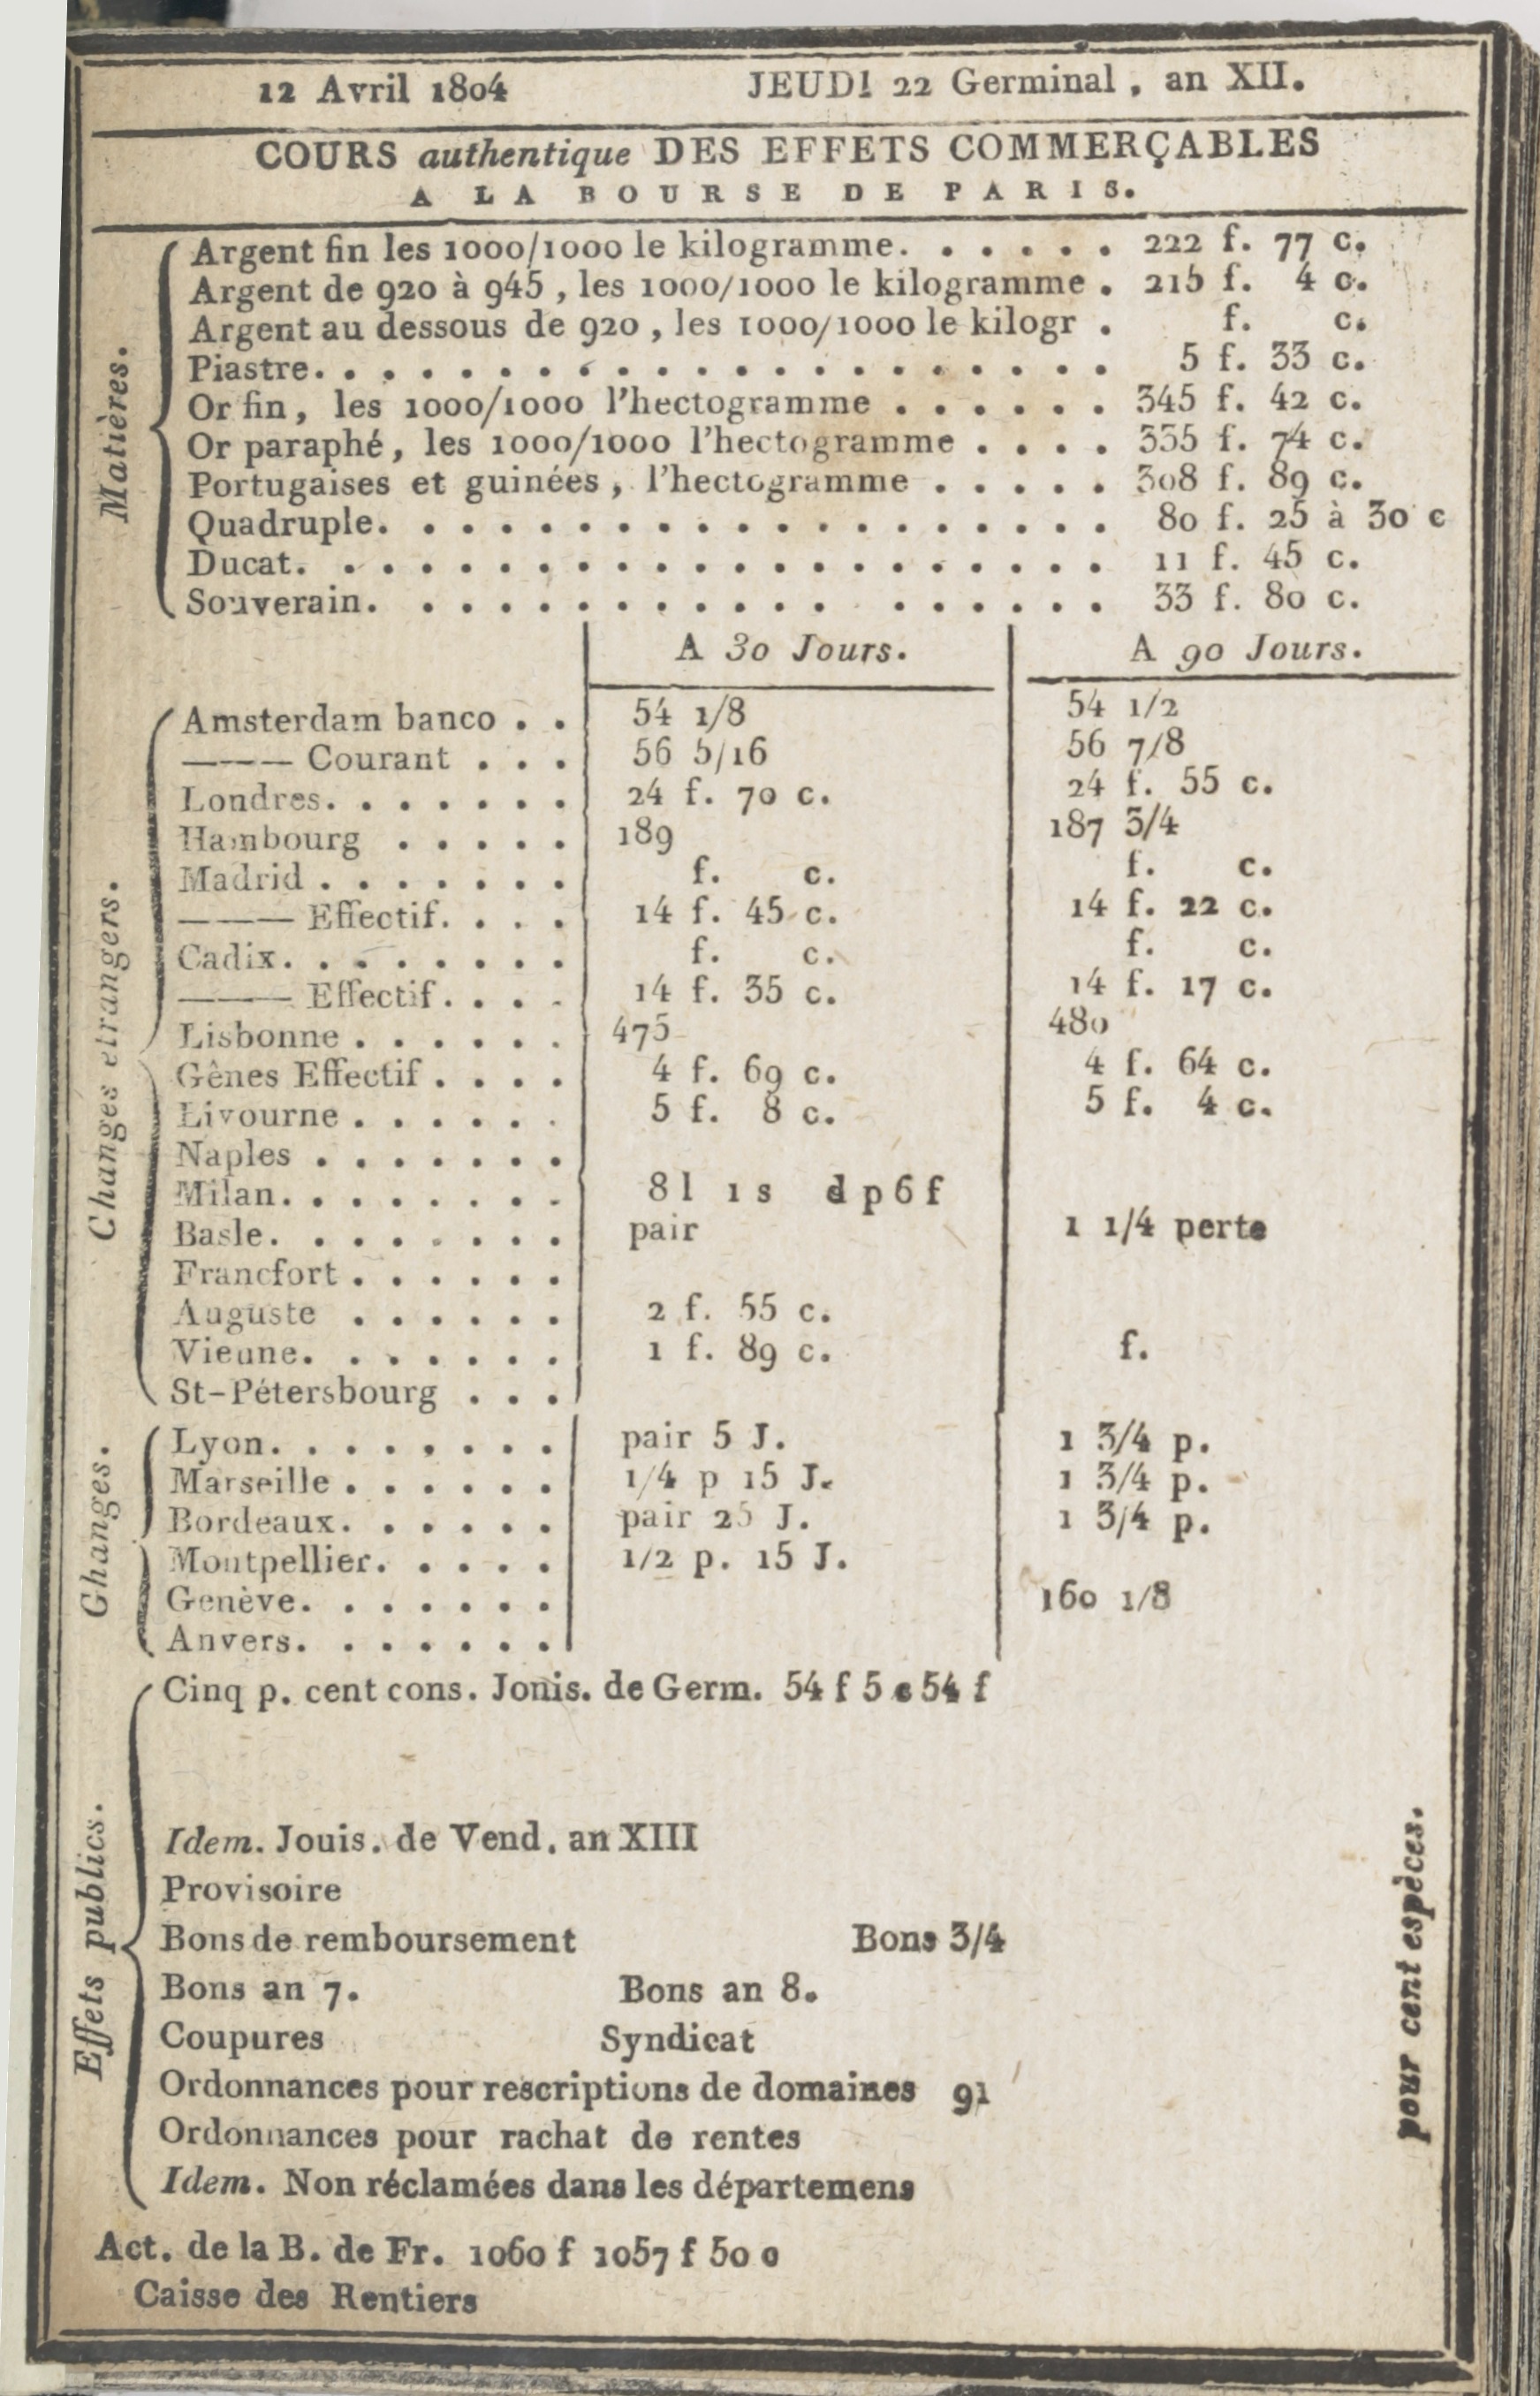 12 Avril 1804 JEUDI 22 Germinal, an XII.
COURS authentique DES EFFETS COMMERÇABLES
A LA BOURSE DE PARIS.
Matières.
Argent fin les 1000/1000 le kilogramme. . . . . . 222 f. 77 c.
Argent de 920 à 945, les 1000/1000 le kilogramme . 215 f. 4 c.
Argent au dessous de 920, les 1000/1000 le kilogr . f. c.
Piastre. . . . . . . . . . . . . . . . . . . . . 5 f. 33 c.
Or fin, les 1000/1000 l'hectogramme . . . . . . 345 f. 42 c.
Or paraphé, les 1000/1000 l'hectogramme . . . . 335 f. 74 c.
Portugaises et guinées, l'hectogramme . . . . . 308 f. 89 c.
Quadruple. . . . . . . . . . . . . . . . . . . 80 f. 25 à 30 c
Ducat. . . . . . . . . . . . . . . . . . . . . 11 f. 45 c.
Souverain. . . . . . . . . . . . . . . . . . 33 f. 80 c.
A 30 Jours. A 90 Jours.
Changes etrangers.
Amsterdam banco . . 54 1/8 54 1/2
——— Courant . . . 56 5/16 56 7/8
Londres. . . . . . . 24 f. 70 c. 24 f. 55 c.
Hambourg . . . . . 189 187 3/4
Madrid . . . . . . . f. c. f. c.
——— Effectif. . . . 14 f. 45 c. 14 f. 22 c.
Cadix. . . . . . . . f. c. f. c.
——— Effectif. . . . 14 f. 35 c. 14 f. 17 c.
Lisbonne . . . . . . 475 480
Gênes Effectif . . . . 4 f. 69 c. 4 f. 64 c.
Livourne . . . . . . 5 f. 8 c. 5 f. 4 c.
Naples . . . . . . .
Milan. . . . . . . . 8 l 1 s d p 6 f
Basle. . . . . . . . pair 1 1/4 perte
Francfort . . . . . .
Auguste . . . . . . 2 f. 55 c.
Vienne. . . . . . . 1 f. 89 c. f.
St-Pétersbourg . . .
Ghanges.
Lyon. . . . . . . . pair 5 J. 1 3/4 p.
Marseille . . . . . . 1/4 p 15 J. 1 3/4 p.
Bordeaux. . . . . . pair 25 J. 1 3/4 p.
Montpellier. . . . . 1/2 p. 15 J.
Genève. . . . . . . 160 1/8
Anvers. . . . . . .
Effets publics.
Cinq p. cent cons. Jonis. de Germ. 54 f 5 c 54 f
Idem. Jouis. de Vend. an XIII
Provisoire
Bons de remboursement Bons 3/4
Bons an 7. Bons an 8.
Coupures Syndicat
Ordonnances pour rescriptions de domaines 91
Ordonnances pour rachat de rentes
Idem. Non réclamées dans les départemens
pour cent espèces.
Act. de la B. de Fr. 1060 f 1057 f 50 c
Caisse des Rentiers